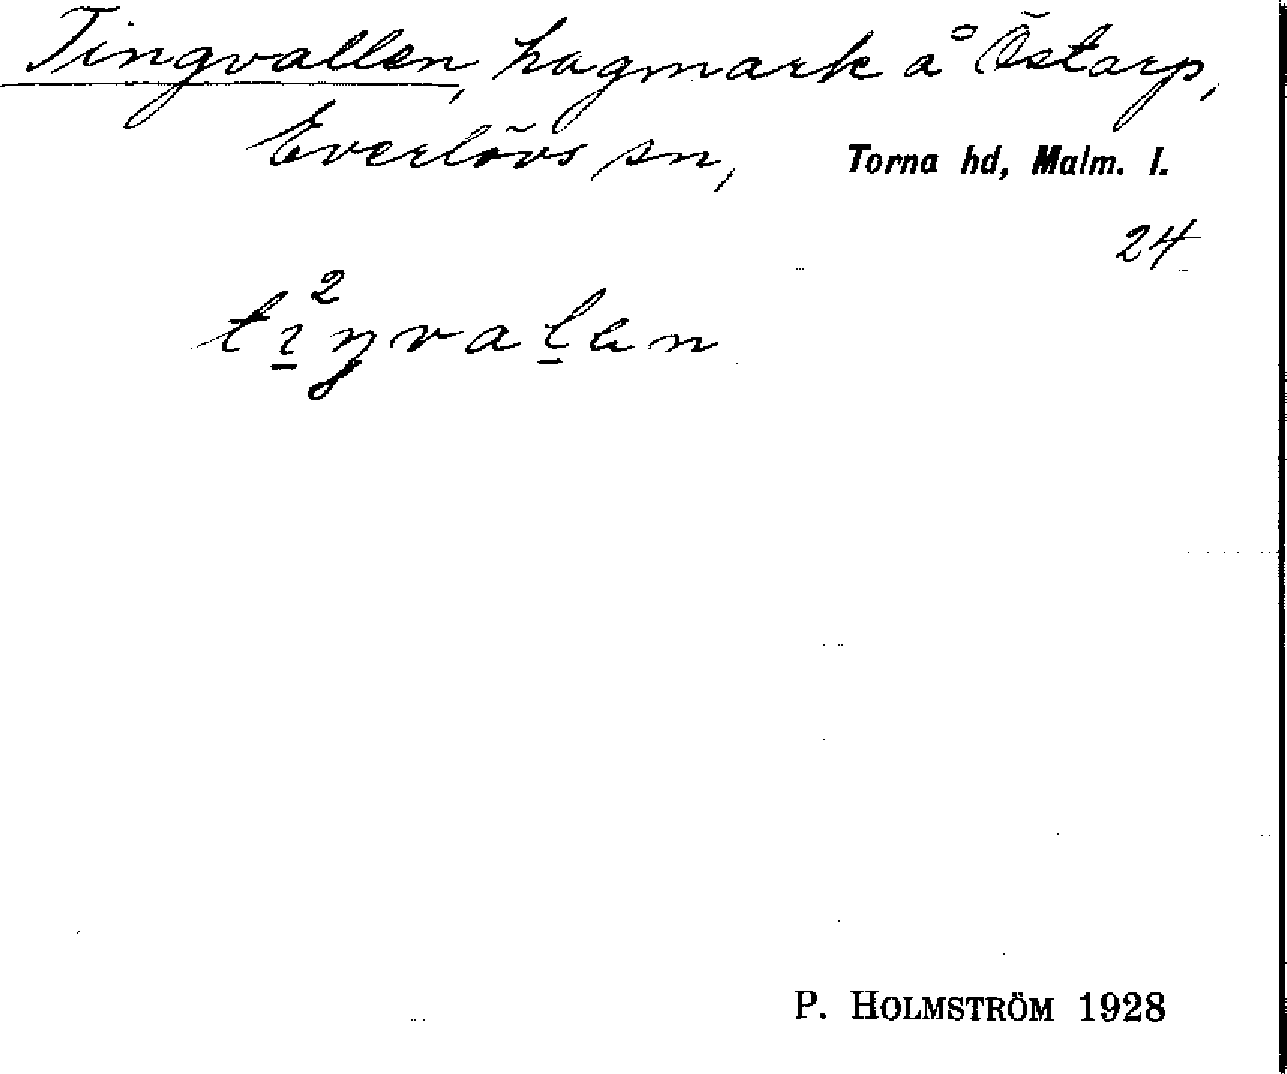 Tingvallen, hagmark å Östarp,
Everlövs sn, Torna hd, Malm. l.
24
tı̱²ŋvaḻen
P. HOLMSTRÖM 1928